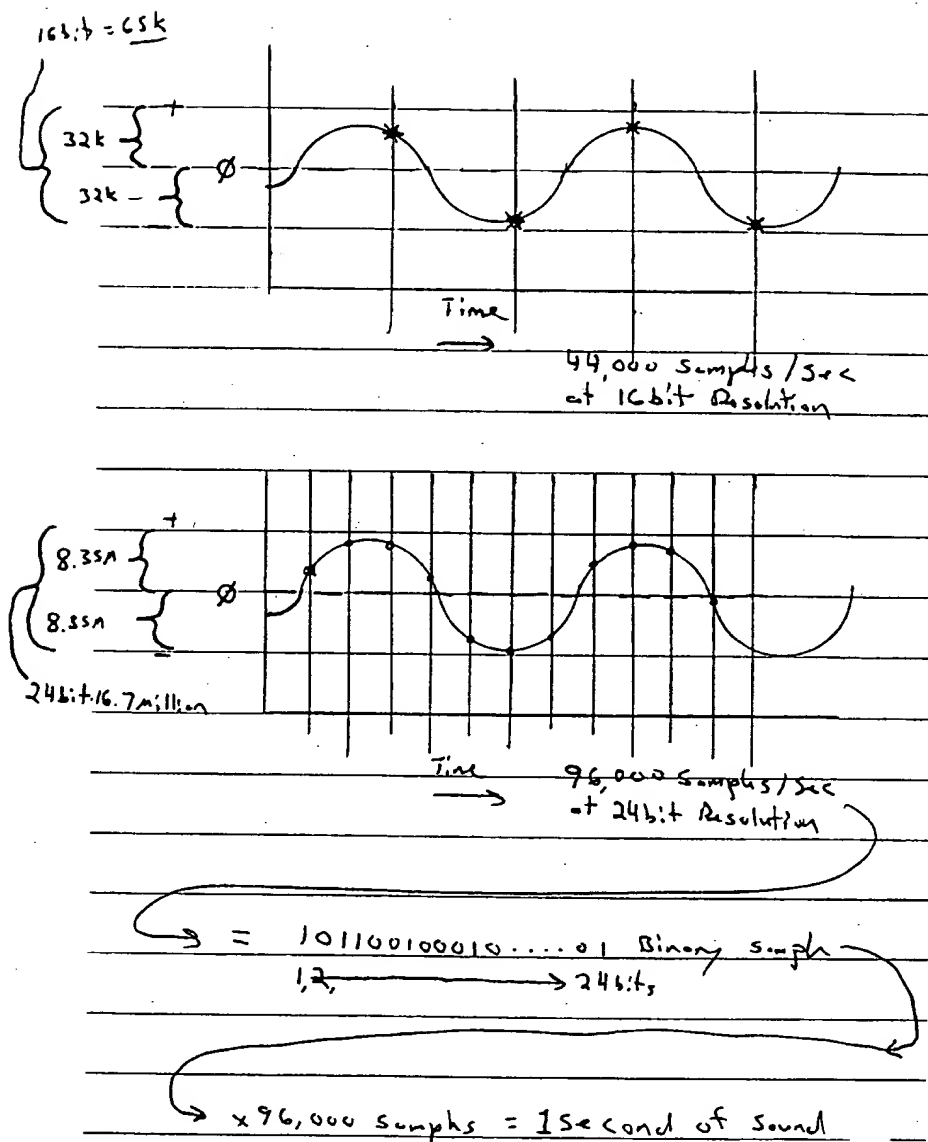 16bit = 65k
+
32k
Ø
32k -
Time
44,000 Samples/Sec
at 16bit Resolution
+
8.35M
Ø
8.35M
-
24bit.16.7Million
Time
96,000 Samples/Sec
at 24bit Resolution
= 101100100010....01 Binary sample
1,2, 24bits
x96,000 samples = 1Second of Sound